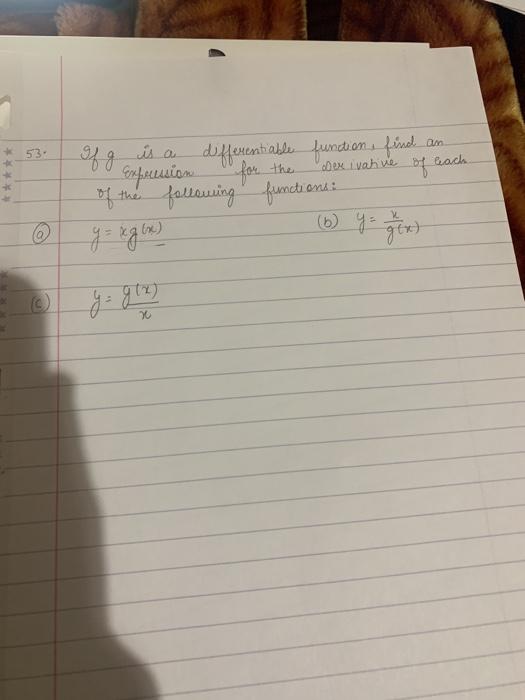 53. If g is a differentiable function, find an
Expression for the derivative of each
of the following functions:
(a) y = xg(x) (b) y = x/g(x)
(c) y = g(x)/x